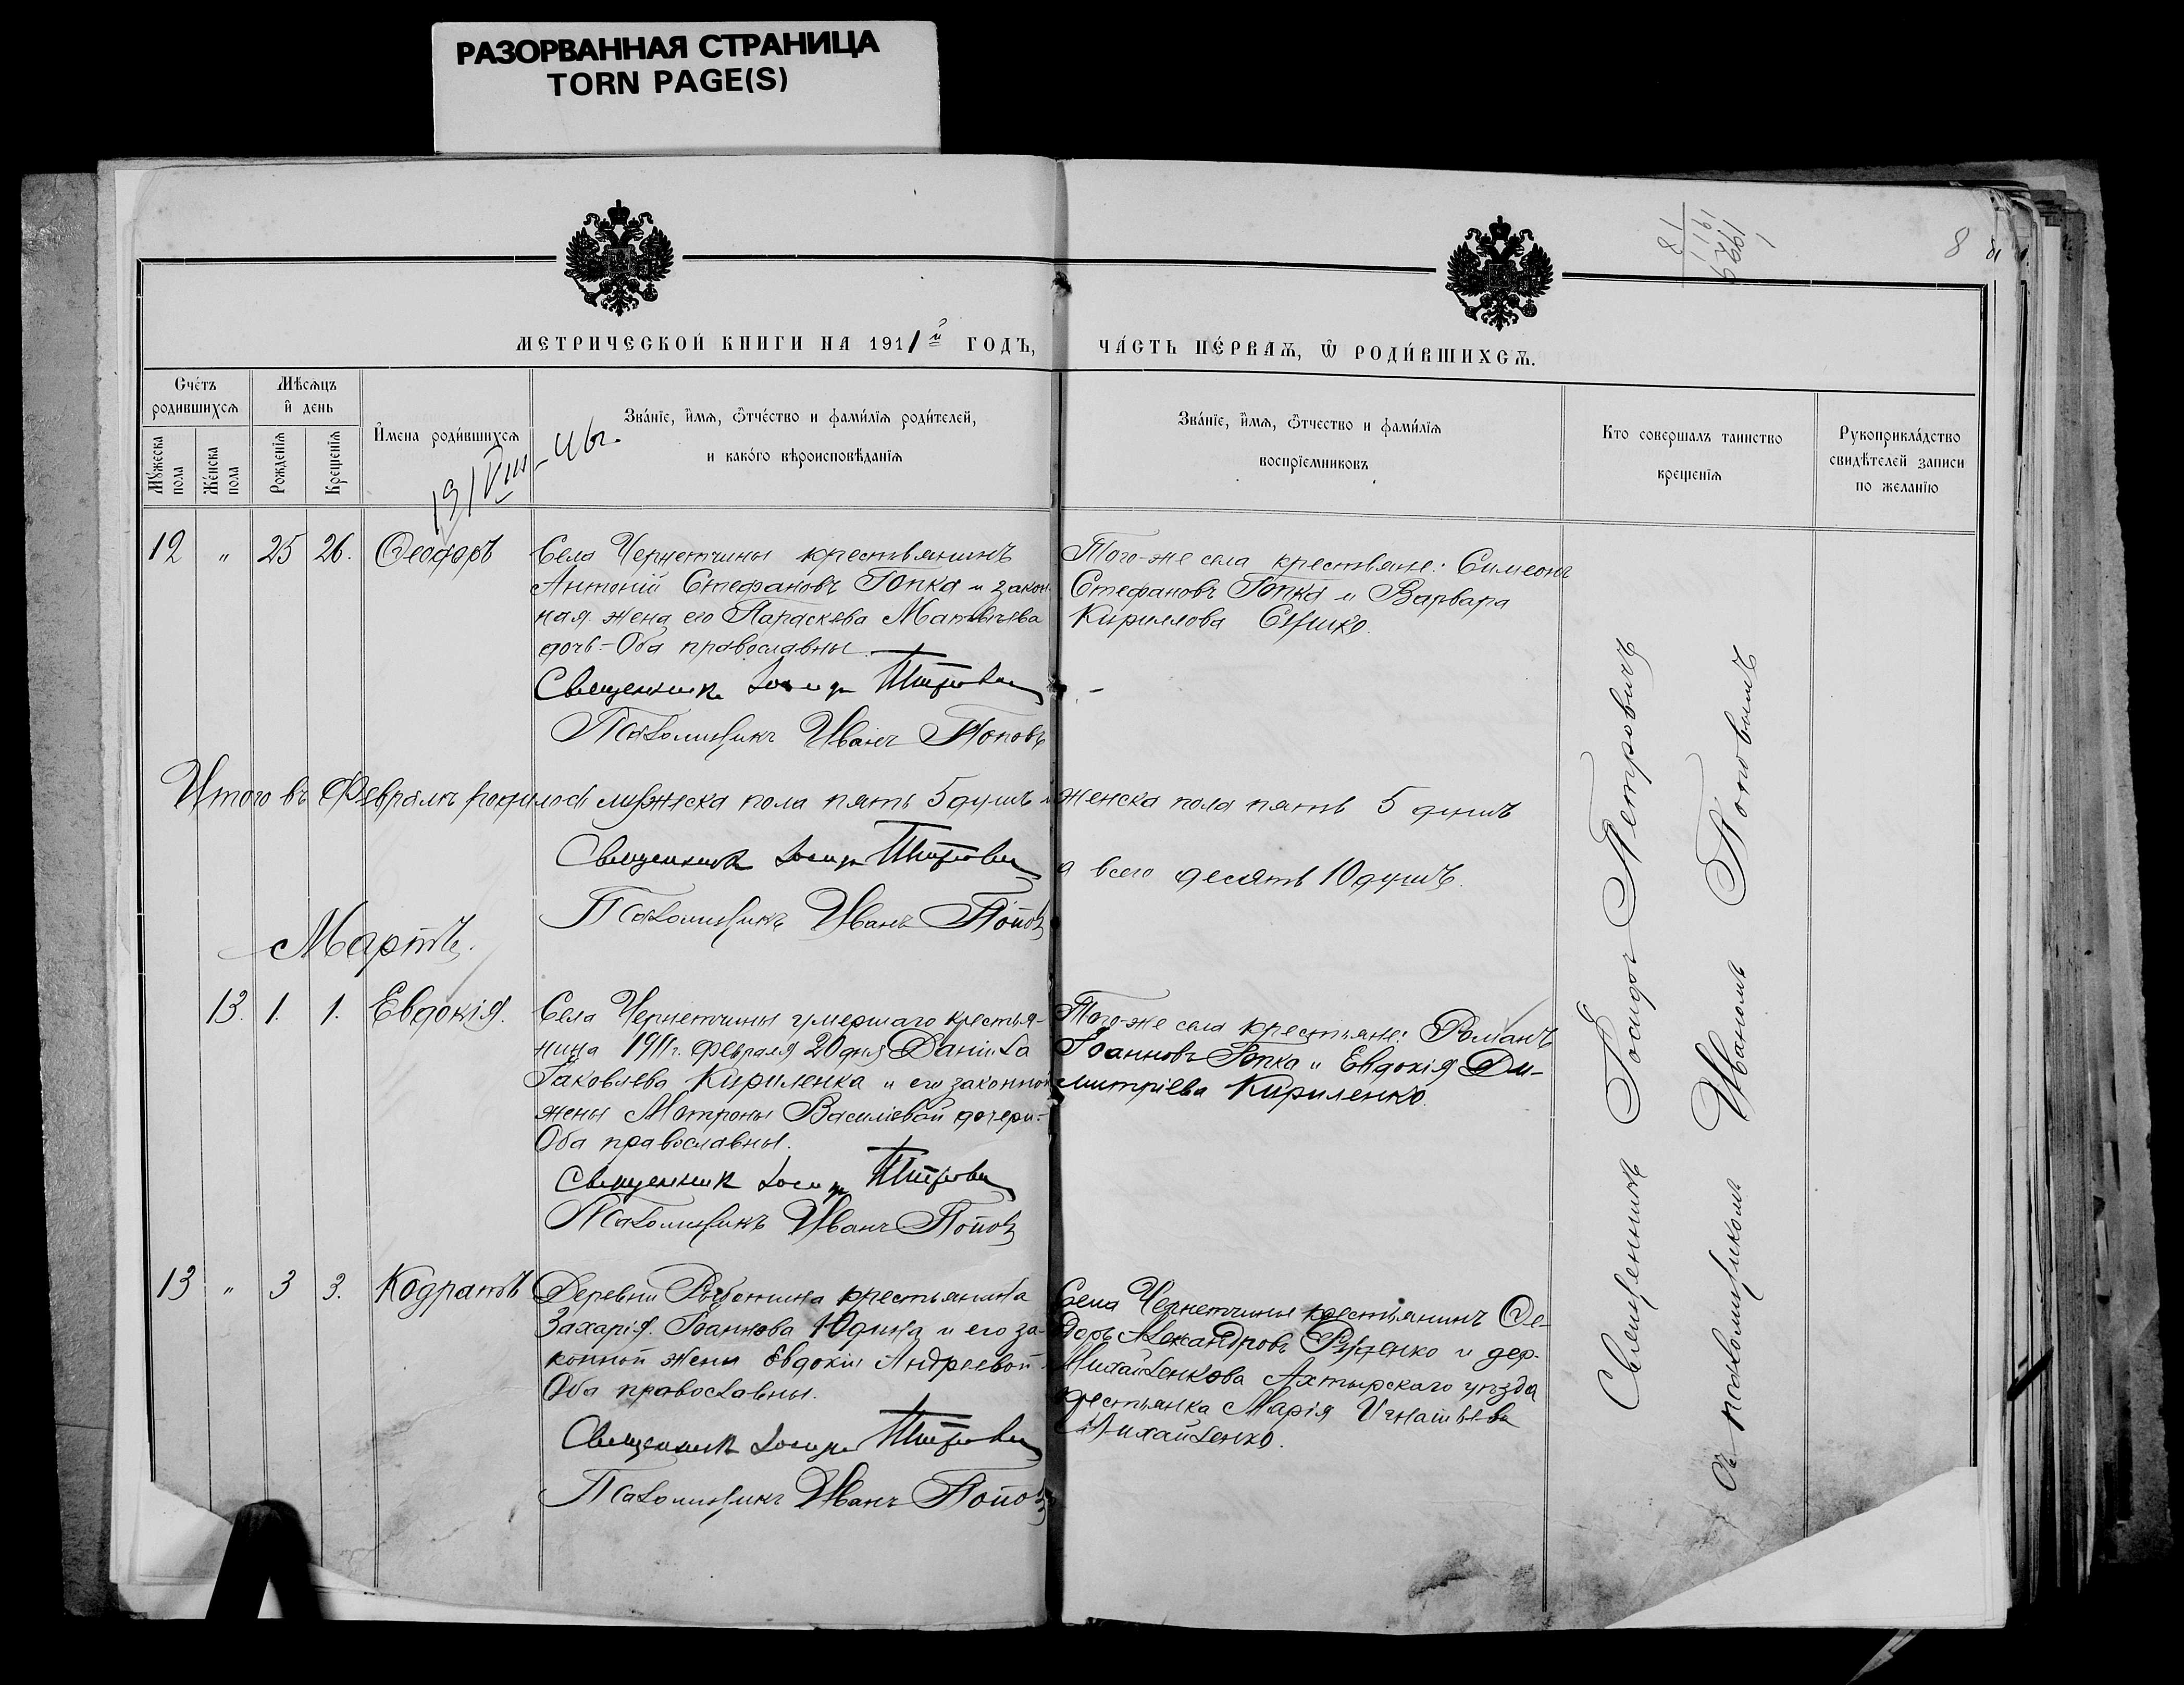 РАЗОРВАННАЯ СТРАНИЦА
TORN PAGE(S)
8
МЕТРИЧЕСКОЙ КНИГИ НА 1911й ГОДЪ,
ЧАСТЬ ПЕРВАѦ, Ѿ РОДИВШИХСѦ.
Счетъ родившихсѧ
Мѣсѧцъ и день
Мужеска пола
Женска пола
Рожденіѧ
Крещеніѧ
Имена родившихсѧ
Званіе, имѧ, ѿчество и фамиліѧ родителей,
и какого вѣроисповѣданіѧ
Званіе, имѧ, ѿчество и фамиліѧ
воспріемниковъ
Кто совершалъ таинство
крещеніѧ
Рукоприкладство
свидѣтелей записи
по желанію
12 " 25 26. Ѳеодоръ
Села Чернетчины крестьянинъ
Антоній Стефановъ Гопка и закон
ная жена его Параскева Матвѣева
дочь - Оба православны.
Священникъ Іосифъ Петрович
Псаломщикъ Иванъ Поповъ
Того-же села крестьяне: Симеонъ
Стефановъ Гопка и Варвара
Кириллова
Итого въ Февралѣ родилось мужска пола пять 5 душъ и женска пола пять 5 душъ
а всего десять 10 душъ.
Священникъ Іосифъ Петрович
Псаломщикъ Иванъ Поповъ
Мартъ.
13. 1. 1. Евдокія.
Села Чернетчины умершаго крестья-
нина 1911г. февраля 20 дня Даніила
Іаковлева Кириленка и его законной
жены Матроны Василіевой дочери-
Оба православны.
Священникъ Іосифъ Петрович
Псаломщикъ Иванъ Поповъ
Того-же села крестьяне: Романъ
Іоанновъ Гопка и Евдокія Ди-
митріева Кириленко.
13 " 3 3. Кодратъ
Деревни крестьянина
Захарія Іоаннова Юдина и его за-
конной жены Евдокіи Андреевой
Оба православны.
Священникъ Іосифъ Петрович
Псаломщикъ Иванъ Поповъ
Села Чернетчины крестьянинъ Ѳе-
доръ Александровъ Руденко и дер.
Михайленкова Ахтырскаго уѣзда
крестьянка Марія Игнатьева
Михайленко.
Священникъ Іосифъ Петровичъ
съ псаломщикомъ Иваномъ Поповымъ